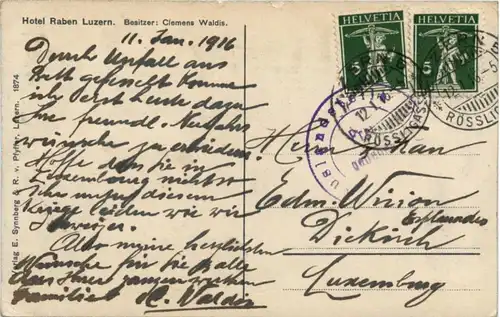 Hotel Raben Luzern. Besitzer: Clemens Waldis.
11. Jan. 1916
Durch Unfall aus
Bett gefesselt komme
ich erst heute dazu
Ihre freundl. Neujahrs
wünsche zu erwidern.
Hoffe dass Sie in
Luxemburg nicht so
sehr unter diesem
Kriege leiden wie wir
Schweizer.
Also meine herzlichsten
Wünsche für Sie alle
aus Ihrer ganzen werten
Familie! Waldis
Verlag E. Synnberg & R. v. Pfyffer, Luzern. 1874
HELVETIA
HELVETIA
5
5
LUZERN
12.I.16
RÖSSLIGASSE
RÖSSLI
Herrn
Edm. Wirion
Esplanades
Diekirch
Luxemburg